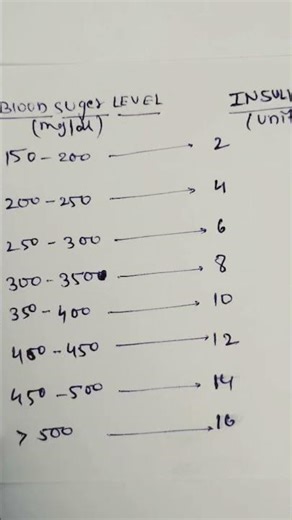 Blood suger LEVEL INSUL
(mg/dl) (unit
150 - 200 → 2
200 - 250 → 4
250 - 300 → 6
300 - 350 → 8
350 - 400 → 10
400 - 450 → 12
450 - 500 → 14
> 500 → 16